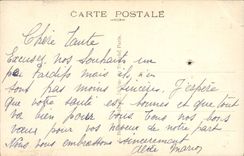 CARTE POSTALE
Chère Tante
Excusez nos souhaits un
peu tardifs mais ils n'en
sont pas moins sincères. J'espère
que votre santé est bonne et que tout
va bien pour vous tous nos bons
vœux pour vos neveux de notre part
Nous vous embrassons sincèrement